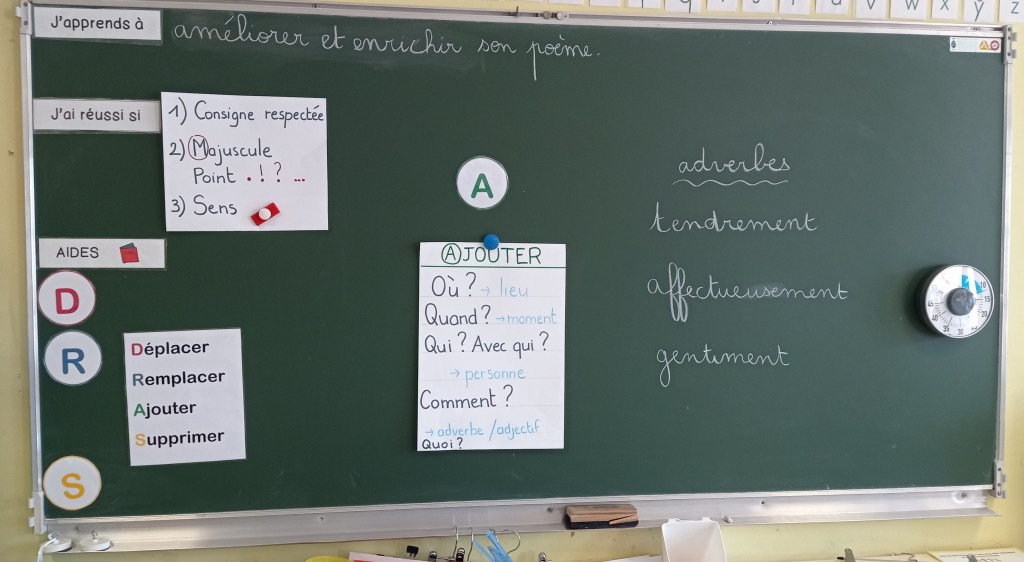 v w x y z
J'apprends à améliorer et enrichir son poème.
J'ai réussi si
1) Consigne respectée
2) Majuscule
Point . ! ? ...
3) Sens
AIDES
D
R
S
Déplacer
Remplacer
Ajouter
Supprimer
A
AJOUTER
Où ? → lieu
Quand ? → moment
Qui ? Avec qui ?
→ personne
Comment ?
→ adverbe / adjectif
Quoi ?
adverbes
tendrement
affectueusement
gentiment